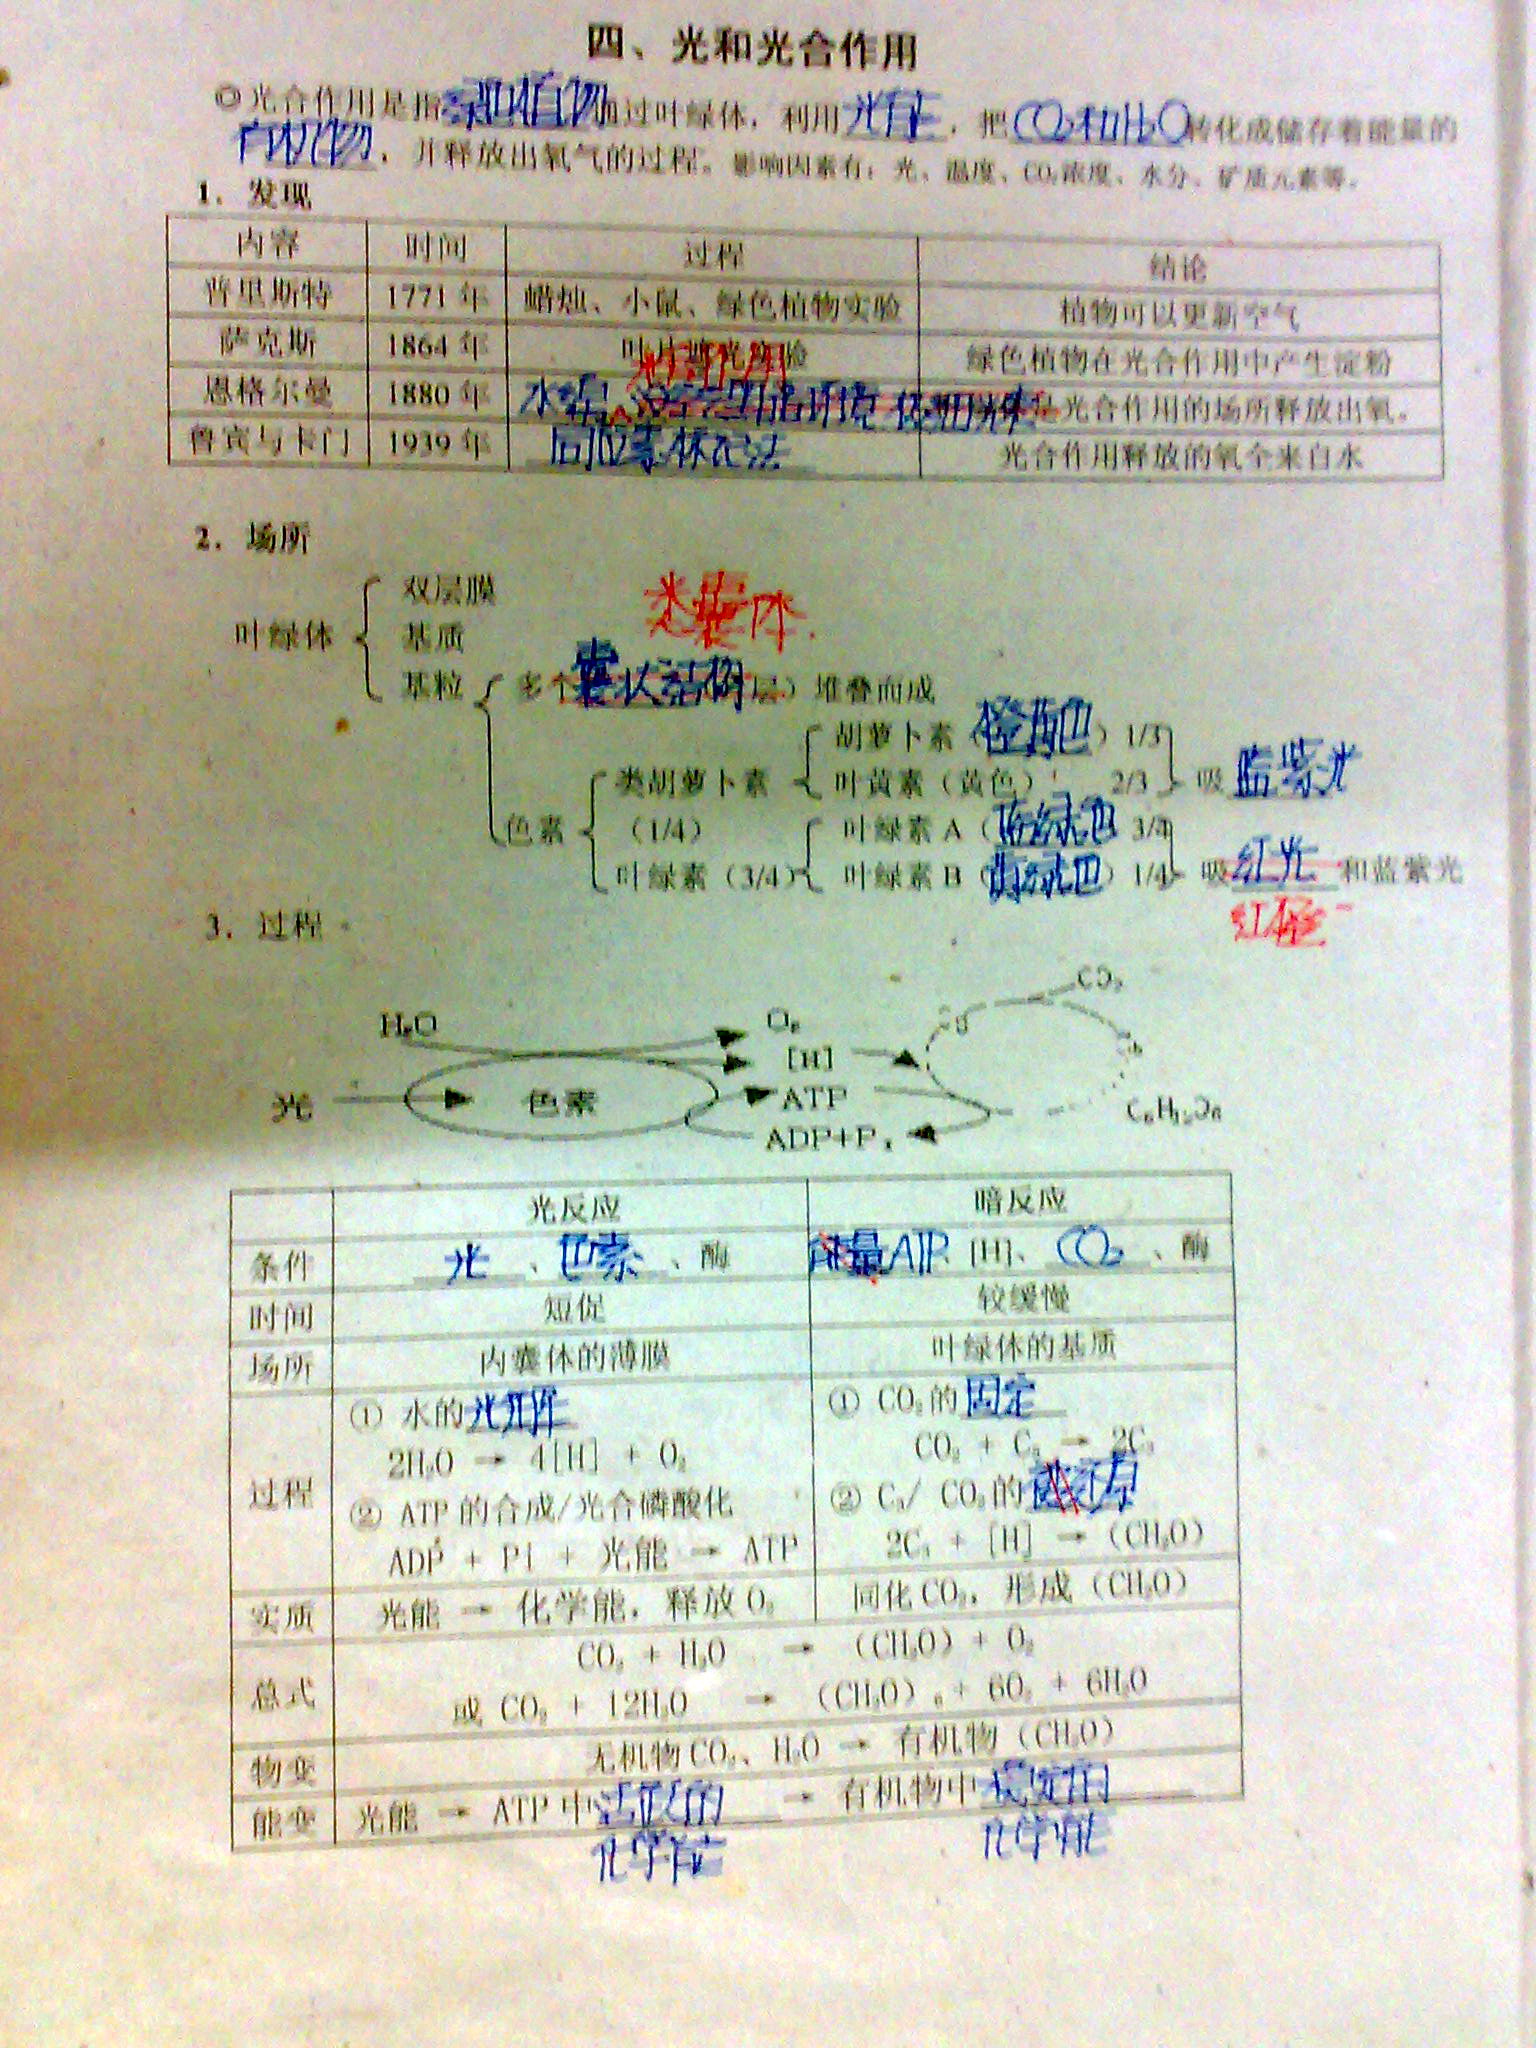 四、光和光合作用
◎光合作用是指绿色植物通过叶绿体，利用光能，把CO₂和H₂O转化成储存着能量的
有机物，并释放出氧气的过程。影响因素有：光、温度、CO₂浓度、水分、矿质元素等。
1．发现
内容 时间 过程 结论
普里斯特 1771年 蜡烛、小鼠、绿色植物实验 植物可以更新空气
萨克斯 1864年 叶片遮光实验 绿色植物在光合作用中产生淀粉
恩格尔曼 1880年 水绵 是光合作用的场所释放出氧。
鲁宾与卡门 1939年 同位素标记法 光合作用释放的氧全来自水
2．场所
双层膜
叶绿体 基质
类囊体
基粒 多个囊状结构 层）堆叠而成
胡萝卜素（橙黄色）1/3
类胡萝卜素 叶黄素（黄色） 2/3 吸蓝紫光
色素 （1/4） 叶绿素A（蓝绿色 3/4
叶绿素（3/4） 叶绿素B（黄绿色）1/4 吸红光和蓝紫光
红橙
3．过程
CO₂
H₂O O₂
[H]
光 色素 ATP
C₆H₁₂O₆
ADP+Pi
光反应 暗反应
条件 光、色素、酶 能量ATP、[H]、CO₂、酶
时间 短促 较缓慢
场所 内囊体的薄膜 叶绿体的基质
过程 ① 水的光解 ① CO₂的固定
2H₂O → 4[H] + O₂ CO₂ + C₅ → 2C₃
② ATP的合成/光合磷酸化 ② C₃/ CO₂的还原
ADP + Pi + 光能 → ATP 2C₃ + [H] → (CH₂O)
实质 光能 → 化学能，释放O₂ 同化CO₂，形成(CH₂O)
总式 CO₂ + H₂O → (CH₂O) + O₂
或 CO₂ + 12H₂O → (CH₂O)₆ + 6O₂ + 6H₂O
物变 无机物CO₂、H₂O → 有机物(CH₂O)
能变 光能 → ATP中活跃的 → 有机物中稳定的
化学能 化学能